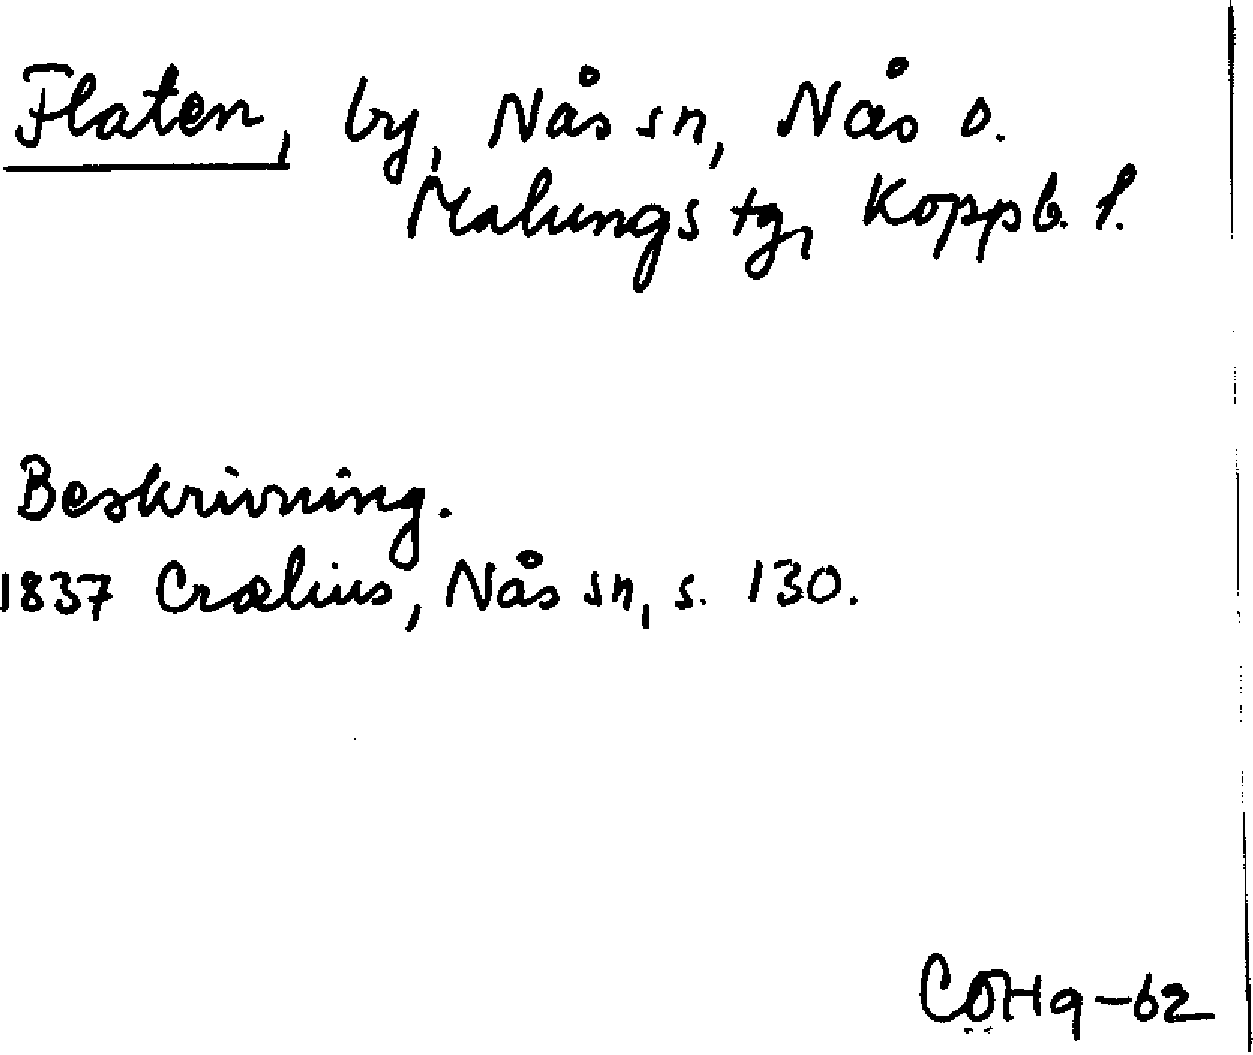 Flaten, by, Nås sn, Nås o.
Malungs tg, Koppb. l.
Beskrivning.
1837 Crælius, Nås sn, s. 130.